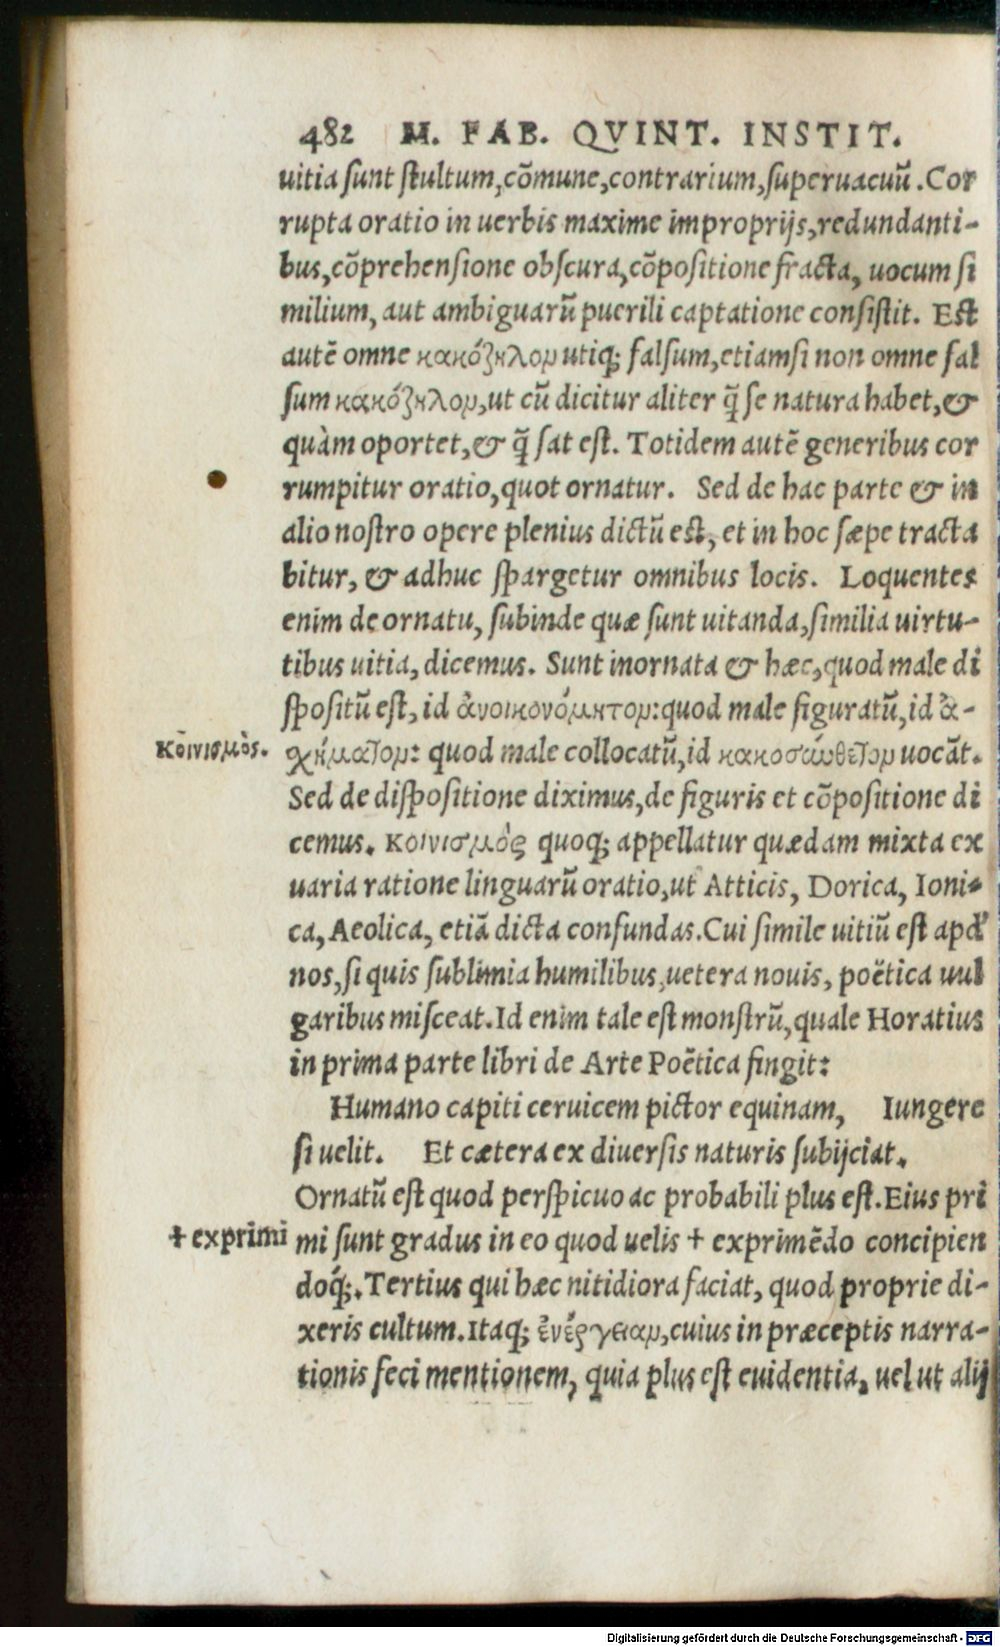 482 M. FAB. QVINT. INSTIT.
uitia sunt stultum, cõmune, contrarium, superuacuũ. Cor
rupta oratio in uerbis maxime improprijs, redundanti-
bus, cõprehensione obscura, cõpositione fracta, uocum si
milium, aut ambiguarũ puerili captatione consistit. Est
autẽ omne κακόζηλον utiq; falsum, etiamsi non omne fal
sum κακόζηλον, ut cũ dicitur aliter q̃ se natura habet, &
quàm oportet, & q̃ sat est. Totidem autẽ generibus cor
rumpitur oratio, quot ornatur. Sed de hac parte & in
alio nostro opere plenius dictũ est, et in hoc sæpe tracta
bitur, & adhuc spargetur omnibus locis. Loquentes
enim de ornatu, subinde quæ sunt uitanda, similia uirtu-
tibus uitia, dicemus. Sunt inornata & hæc, quod male di
spositũ est, id ἀνοικονόμητον: quod male figuratũ, id ἀ-
Κοινισμὸς.
χήματον: quod male collocatũ, id κακοσύνθετον uocãt.
Sed de dispositione diximus, de figuris et cõpositione di
cemus. Κοινισμὸς quoq; appellatur quædam mixta ex
uaria ratione linguarũ oratio, ut Atticis, Dorica, Ioni-
ca, Aeolica, etiã dicta confundas. Cui simile uitiũ est apd'
nos, si quis sublimia humilibus, uetera nouis, poëtica uul
garibus misceat. Id enim tale est monstrũ, quale Horatius
in prima parte libri de Arte Poëtica fingit:
Humano capiti ceruicem pictor equinam, Iungere
si uelit. Et cætera ex diuersis naturis subijciat.
Ornatũ est quod perspicuo ac probabili plus est. Eius pri
+ exprimi
mi sunt gradus in eo quod uelis + exprimẽdo concipien
doq́;. Tertius qui hæc nitidiora faciat, quod proprie di-
xeris cultum. Itaq; ἐνέργειαν, cuius in præceptis narra-
tionis feci mentionem, quia plus est euidentia, uel ut alij
Digitalisierung gefördert durch die Deutsche Forschungsgemeinschaft - DFG